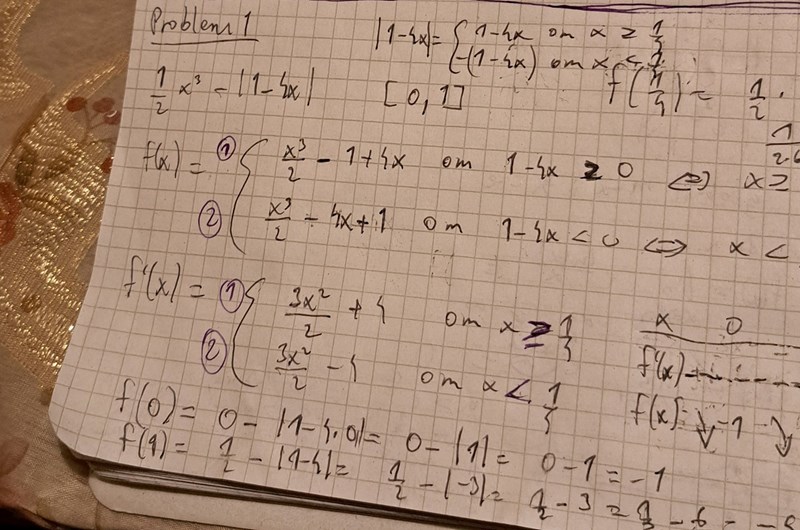 Problem 1
|1-4x| = { 1-4x om x ≥ 1/4
-(1-4x) om x < 1/4
1/2 x³ - |1-4x| [0,1] f(1/4) = 1/2 ·
f(x) = ① x³/2 - 1 + 4x om 1-4x ≥ 0 ⇔ x ≥
② x³/2 - 4x + 1 om 1-4x < 0 ⇔ x <
f'(x) = ① 3x²/2 + 4 om x ≥ 1/4
② 3x²/2 - 4 om x < 1/4
x 0
f'(x)
f(x) ↘ -1 ↘
f(0) = 0 - |1-4·0| = 0 - |1| = 0 - 1 = -1
f(1) = 1/2 - |1-4| = 1/2 - |-3| = 1/2 - 3 =